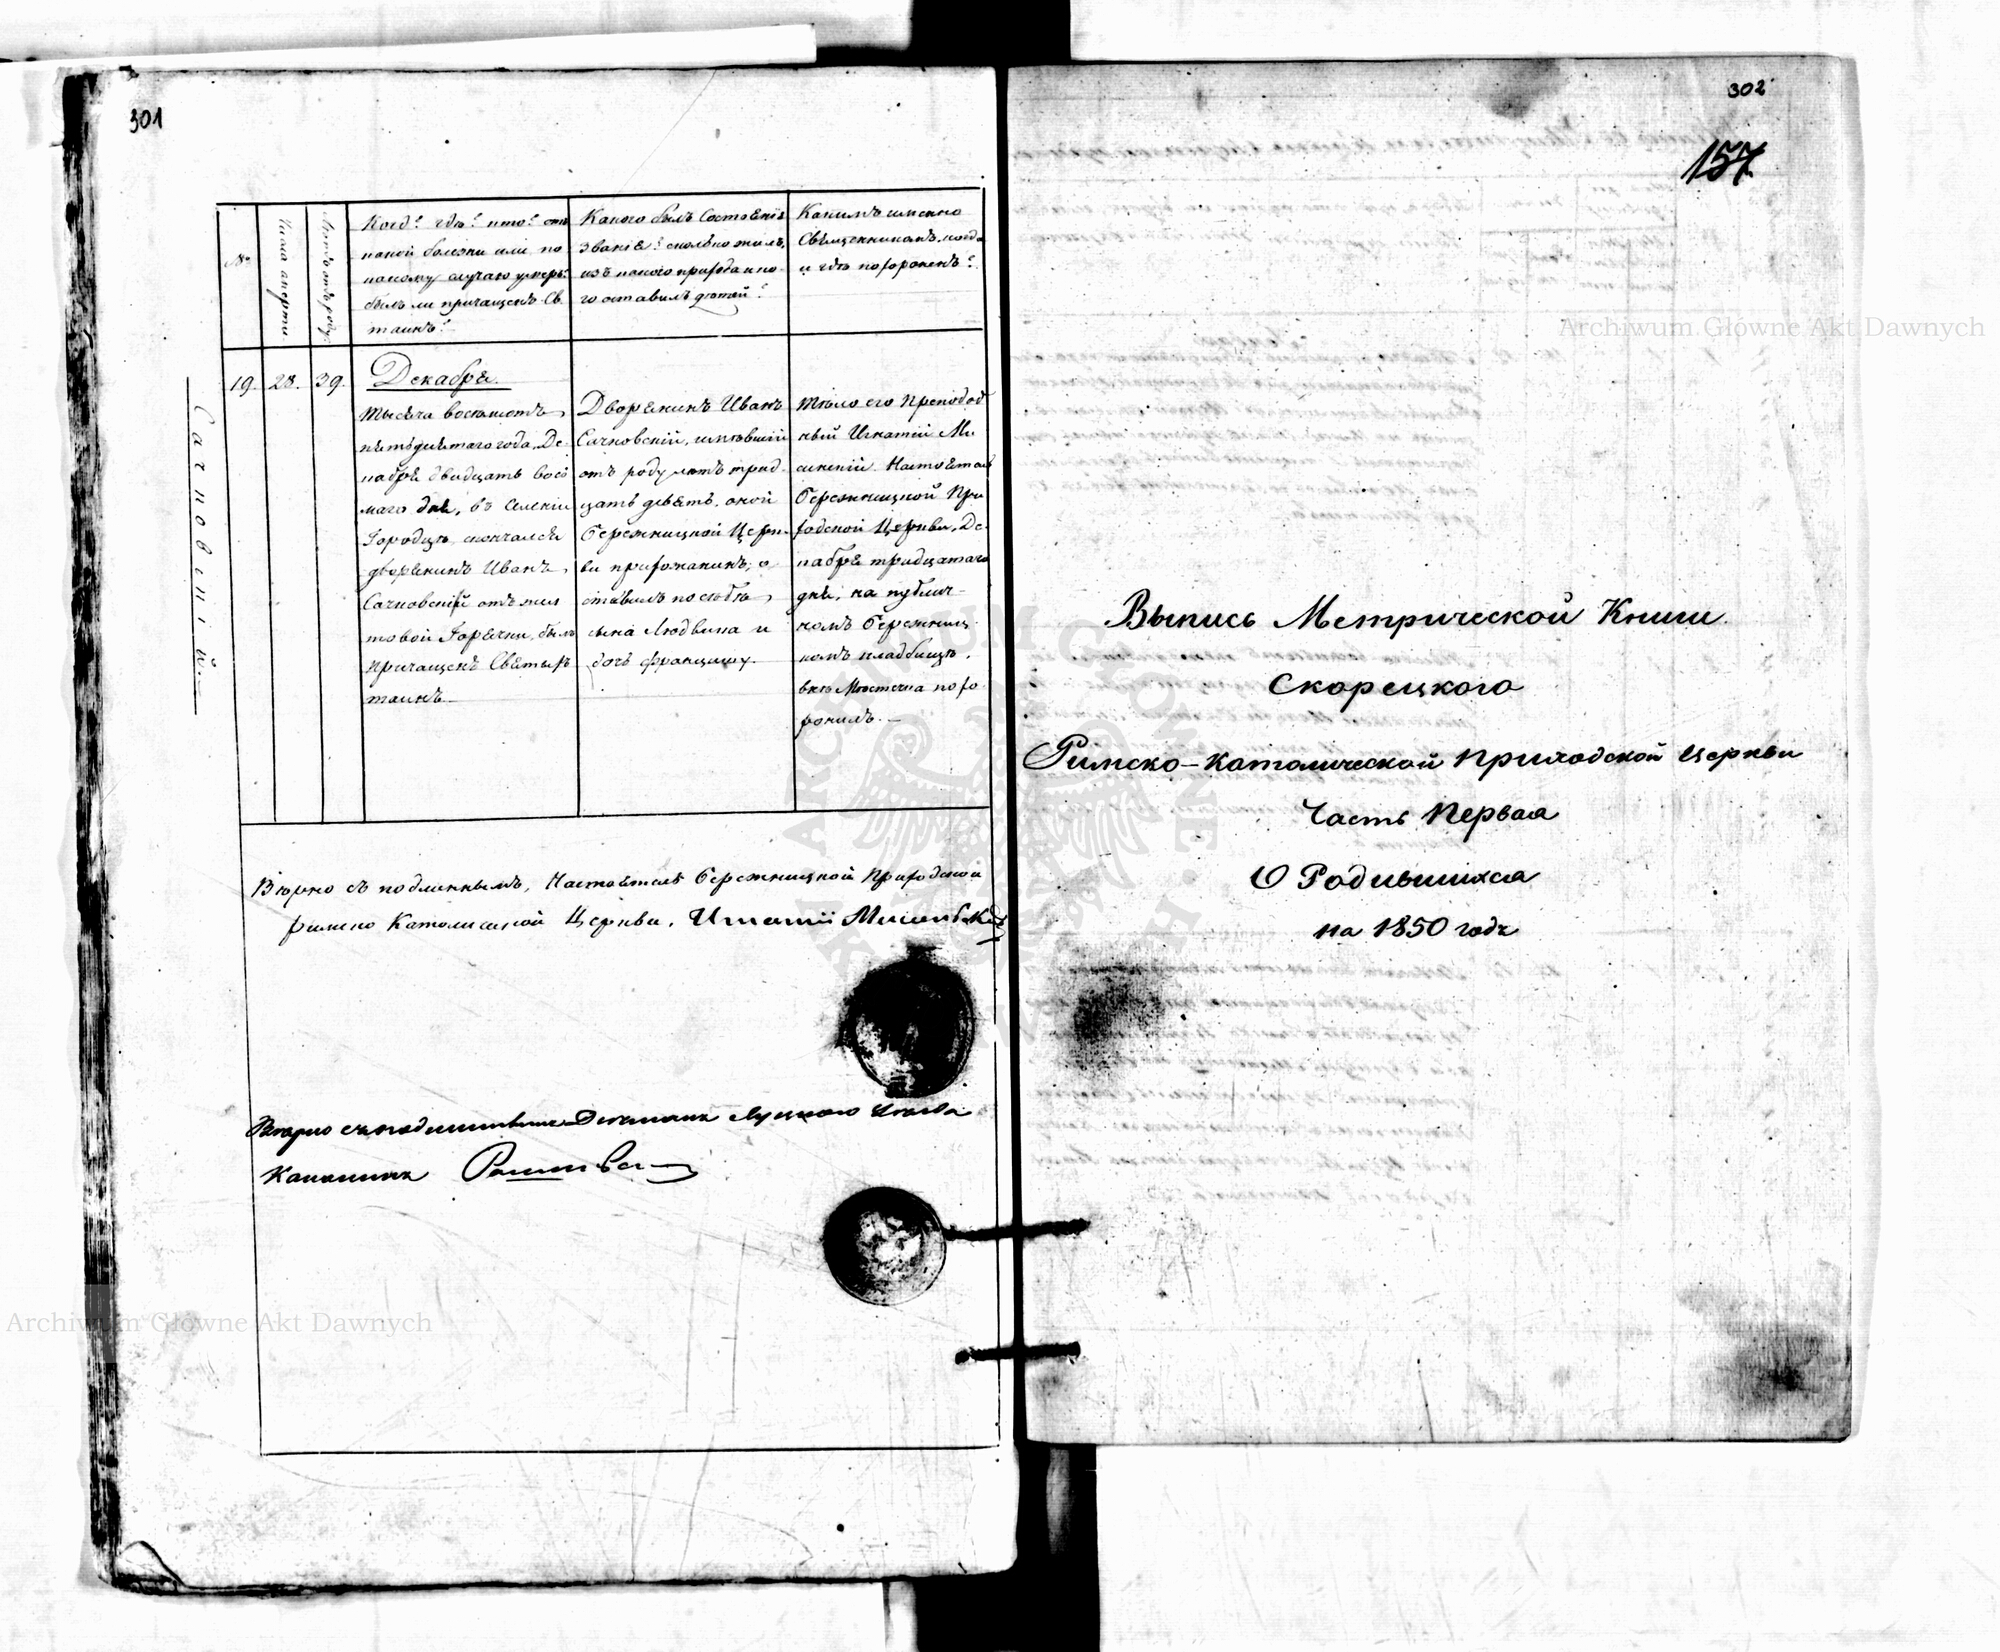 301
№
Число смерти
Когда? гдѣ? кто? отъ
какой болезни или по
какому случаю умеръ?
былъ ли причащенъ Св.
таинъ?
Какого былъ состоянія
званія? сколько жилъ,
изъ какого прихода и ко-
го оставилъ дѣтей?
Какимъ именно
Священникомъ, когда
и гдѣ похороненъ?
Сачковскій.
19.
28.
39.
Декабря.
Тысяча восемьсотъ
пятьдесятаго года, Де-
кабря двадцать вось
маго дня, въ селеніи
Городцѣ скончался
дворянинъ Иванъ
Сачковскій отъ жел
товой горячки, былъ
причащенъ Святыхъ
таинъ.
Дворянинъ Иванъ
Сачковскій, имѣвшій
отъ роду лѣтъ трид-
цать девять, оной
Бережницкой Церк-
ви прихожанинъ, о
ставилъ по себѣ
сына Людвика и
дочь Францишку.
Тѣло его Преподоб
ный Игнатій Ми
Настоятель
Бережницкой При
ходской Церкви, Де-
кабря тридцатаго
дня, на публич-
номъ Бережниц-
комъ кладбищѣ,
внѣ Мѣстечка похо
ронилъ.
Вѣрно съ подлиннымъ, Настоятель Бережницкой Приходской
Римско Католической Церкви, Игнатій
Вѣрно съ подлиннымъ Деканъ Луцкого уезда
Каноникъ
302
157
Выпись Метрической Книги
Скорецкого
Римско-Католической Приходской Церкви
Часть Первая
О Родившихся
на 1850 годъ
Archiwum Główne Akt Dawnych
Archiwum Główne Akt Dawnych